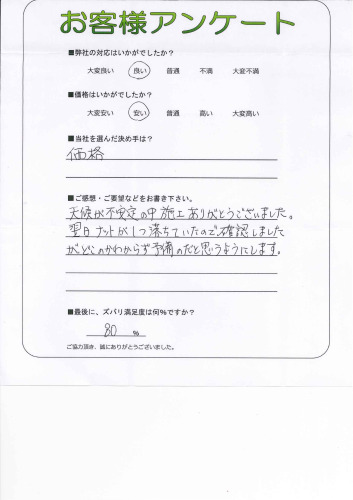 お客様アンケート
■弊社の対応はいかがでしたか？
大変良い 良い 普通 不満 大変不満
■価格はいかがでしたか？
大変安い 安い 普通 高い 大変高い
■当社を選んだ決め手は？
価格
■ご感想・ご要望などをお書き下さい。
天候が不安定の中施工ありがとうございました。
翌日ナットが1つ落ちていたので確認しました
がどこのかわからず予備のだと思うようにします。
■最後に、ズバリ満足度は何%ですか？
80 %
ご協力頂き、誠にありがとうございました。